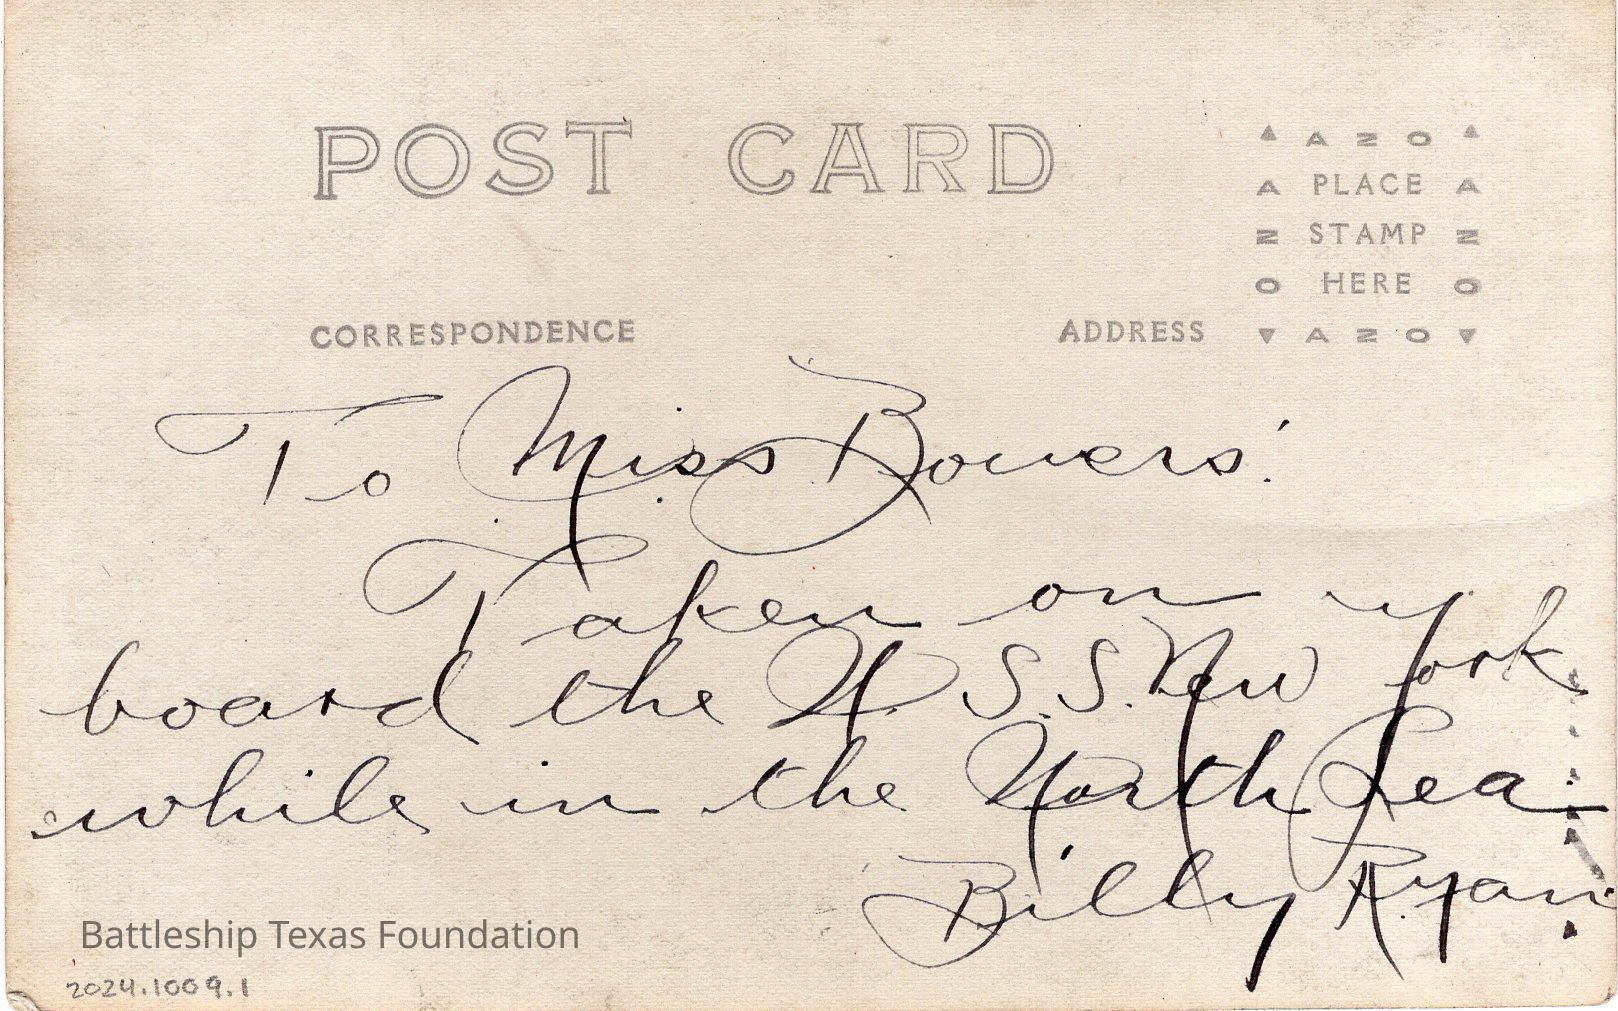 POST CARD
▲ AZO ▲
A PLACE A
Z STAMP Z
O HERE O
CORRESPONDENCE
ADDRESS
▼ AZO ▼
To Miss Bowers.
Taken on
board the U.S.S. New York
while in the North Sea
Billy Ryan
Battleship Texas Foundation
2024.1009.1